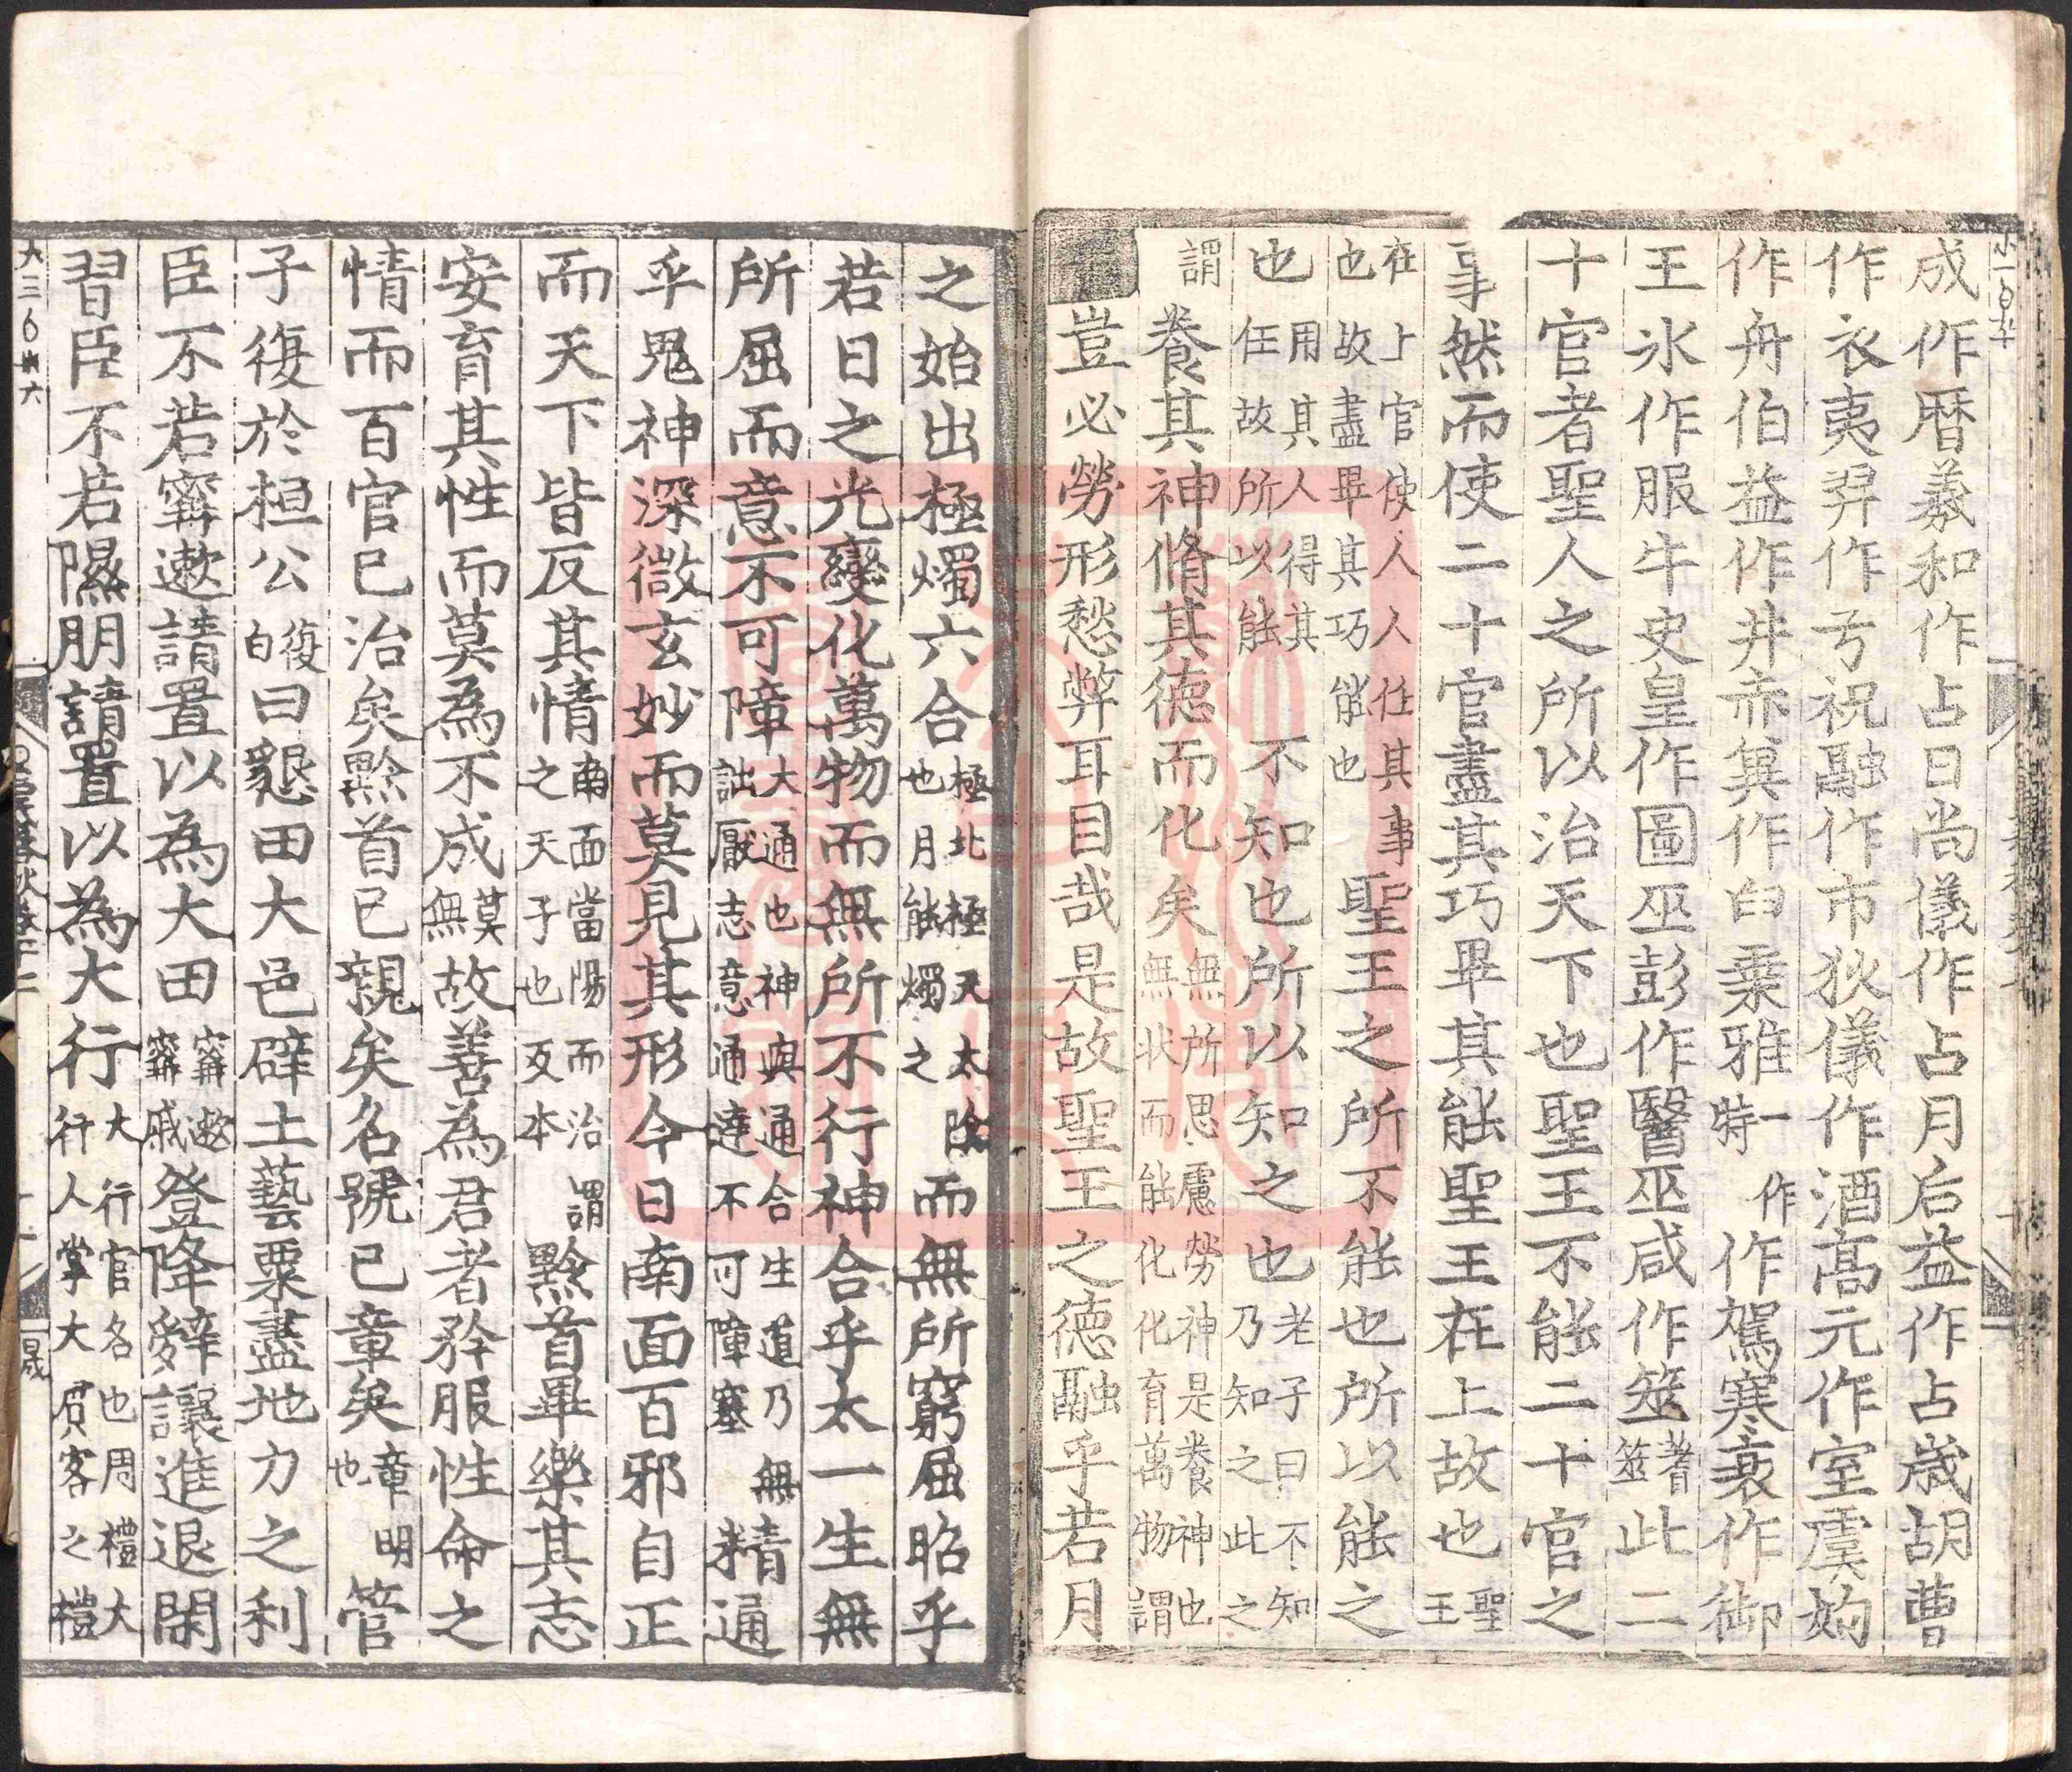 成作暦羲和作占日尚儀作占月后益作占歲胡曹
作衣夷羿作弓祝融作市狄儀作酒高元作室虞姁
作舟伯益作井赤冀作臼乘雅一作時作駕寒衰作御
王氷作服牛史皇作圖巫彭作醫巫咸作筮蓍筮此二
十官者聖人之所以治天下也聖王不能二十官之
事然而使二十官盡其巧畢其能聖王在上故也聖王
在上官使人人任其事也故盡畢其巧能也聖王之所不能也所以能之
也用其人得其任故所以能不知也所以知之也老子曰不知乃知之此之
謂養其神脩其德而化矣無所思慮勞神是養神也無狀而能化化育萬物謂
豈必勞形愁弊耳目哉是故聖王之德融乎若月
之始出極燭六合極北極天太陰也月能燭之而無所窮屈昭乎
若日之光變化萬物而無所不行神合乎太一生無
所屈而意不可障大通也神與通合生道乃無詘厭志意通達不可障塞精通
乎鬼神深微玄妙而莫見其形今日南面百邪自正
而天下皆反其情南面當陽而治謂之天子也反本黔首畢樂其志
安育其性而莫為不成莫無故善為君者矜服性命之
情而百官已治矣黔首已親矣名號已章矣章明也管
子復於桓公復白曰懇田大邑辟土藝粟盡地力之利
臣不若甯遬請置以為大田甯遬甯戚登降辭讓進退閑
習臣不若隰朋請置以為大行大行官名也周禮大行人掌大賓客之禮